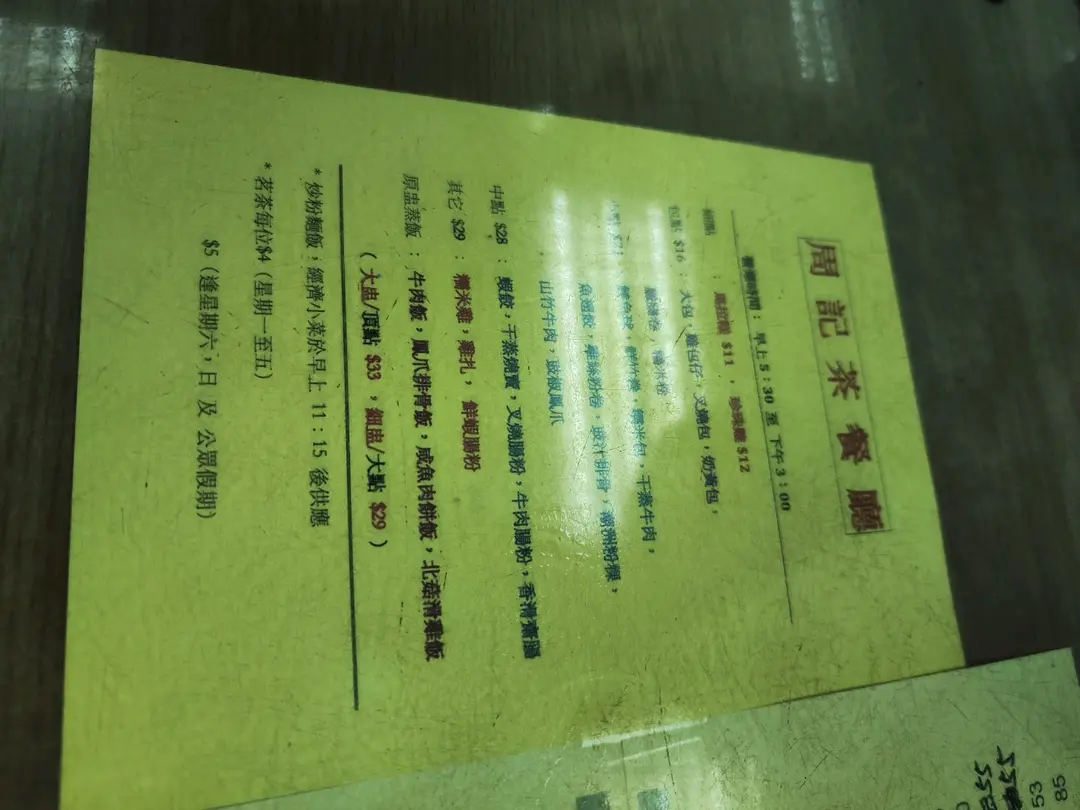 周記茶餐廳
時間： 早上5：30 至 下午3：00
$11 ， $12
包點 $16 ： 大包，雞包仔，叉燒包，奶黃包，
糯米包，干蒸牛肉，
魚翅餃，雞絲粉卷，豉汁排骨，潮州粉粿，
山竹牛肉，豉椒鳳爪
中點 $28 ： 蝦餃，干蒸燒賣，叉燒腸粉，牛肉腸粉，香滑齋腸
其它 $29 ： 糯米雞，雞扎， 鮮蝦腸粉
原盅蒸飯 ： 牛肉飯，鳳爪排骨飯，咸魚肉餅飯，北菇滑雞飯
（ 大盅/頂點 $33 ，細盅/大點 $29 ）
* 炒粉麵飯，經濟小菜於早上 11：15 後供應
* 茗茶每位$4（星期一至五）
$5（逢星期六，日 及 公眾假期）
55
55
53
85